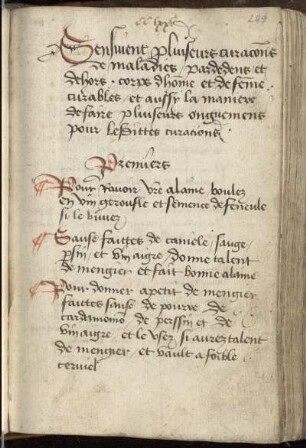 Sensuivent pluiseurs curacons
de maladies par dedens et
dehors corps dhome et de feme
curables et aussy la maniere
de faire pluiseurs onguemens
pour lesdittes curacions
Premiers
Pour ravoir vre alame boulez
en vin geroufle et semence de fenicule
si le buvez
Sause faittes de caniele sauge
psin et vin aigre donne talent
de mengier et fait bonne alame
Pour donner apetit de mengier
faittes sause de pouvre de
cardamomo de perssin et de
vin aigre et le usez si aurez talent
de mengier et vault a foible
cervel